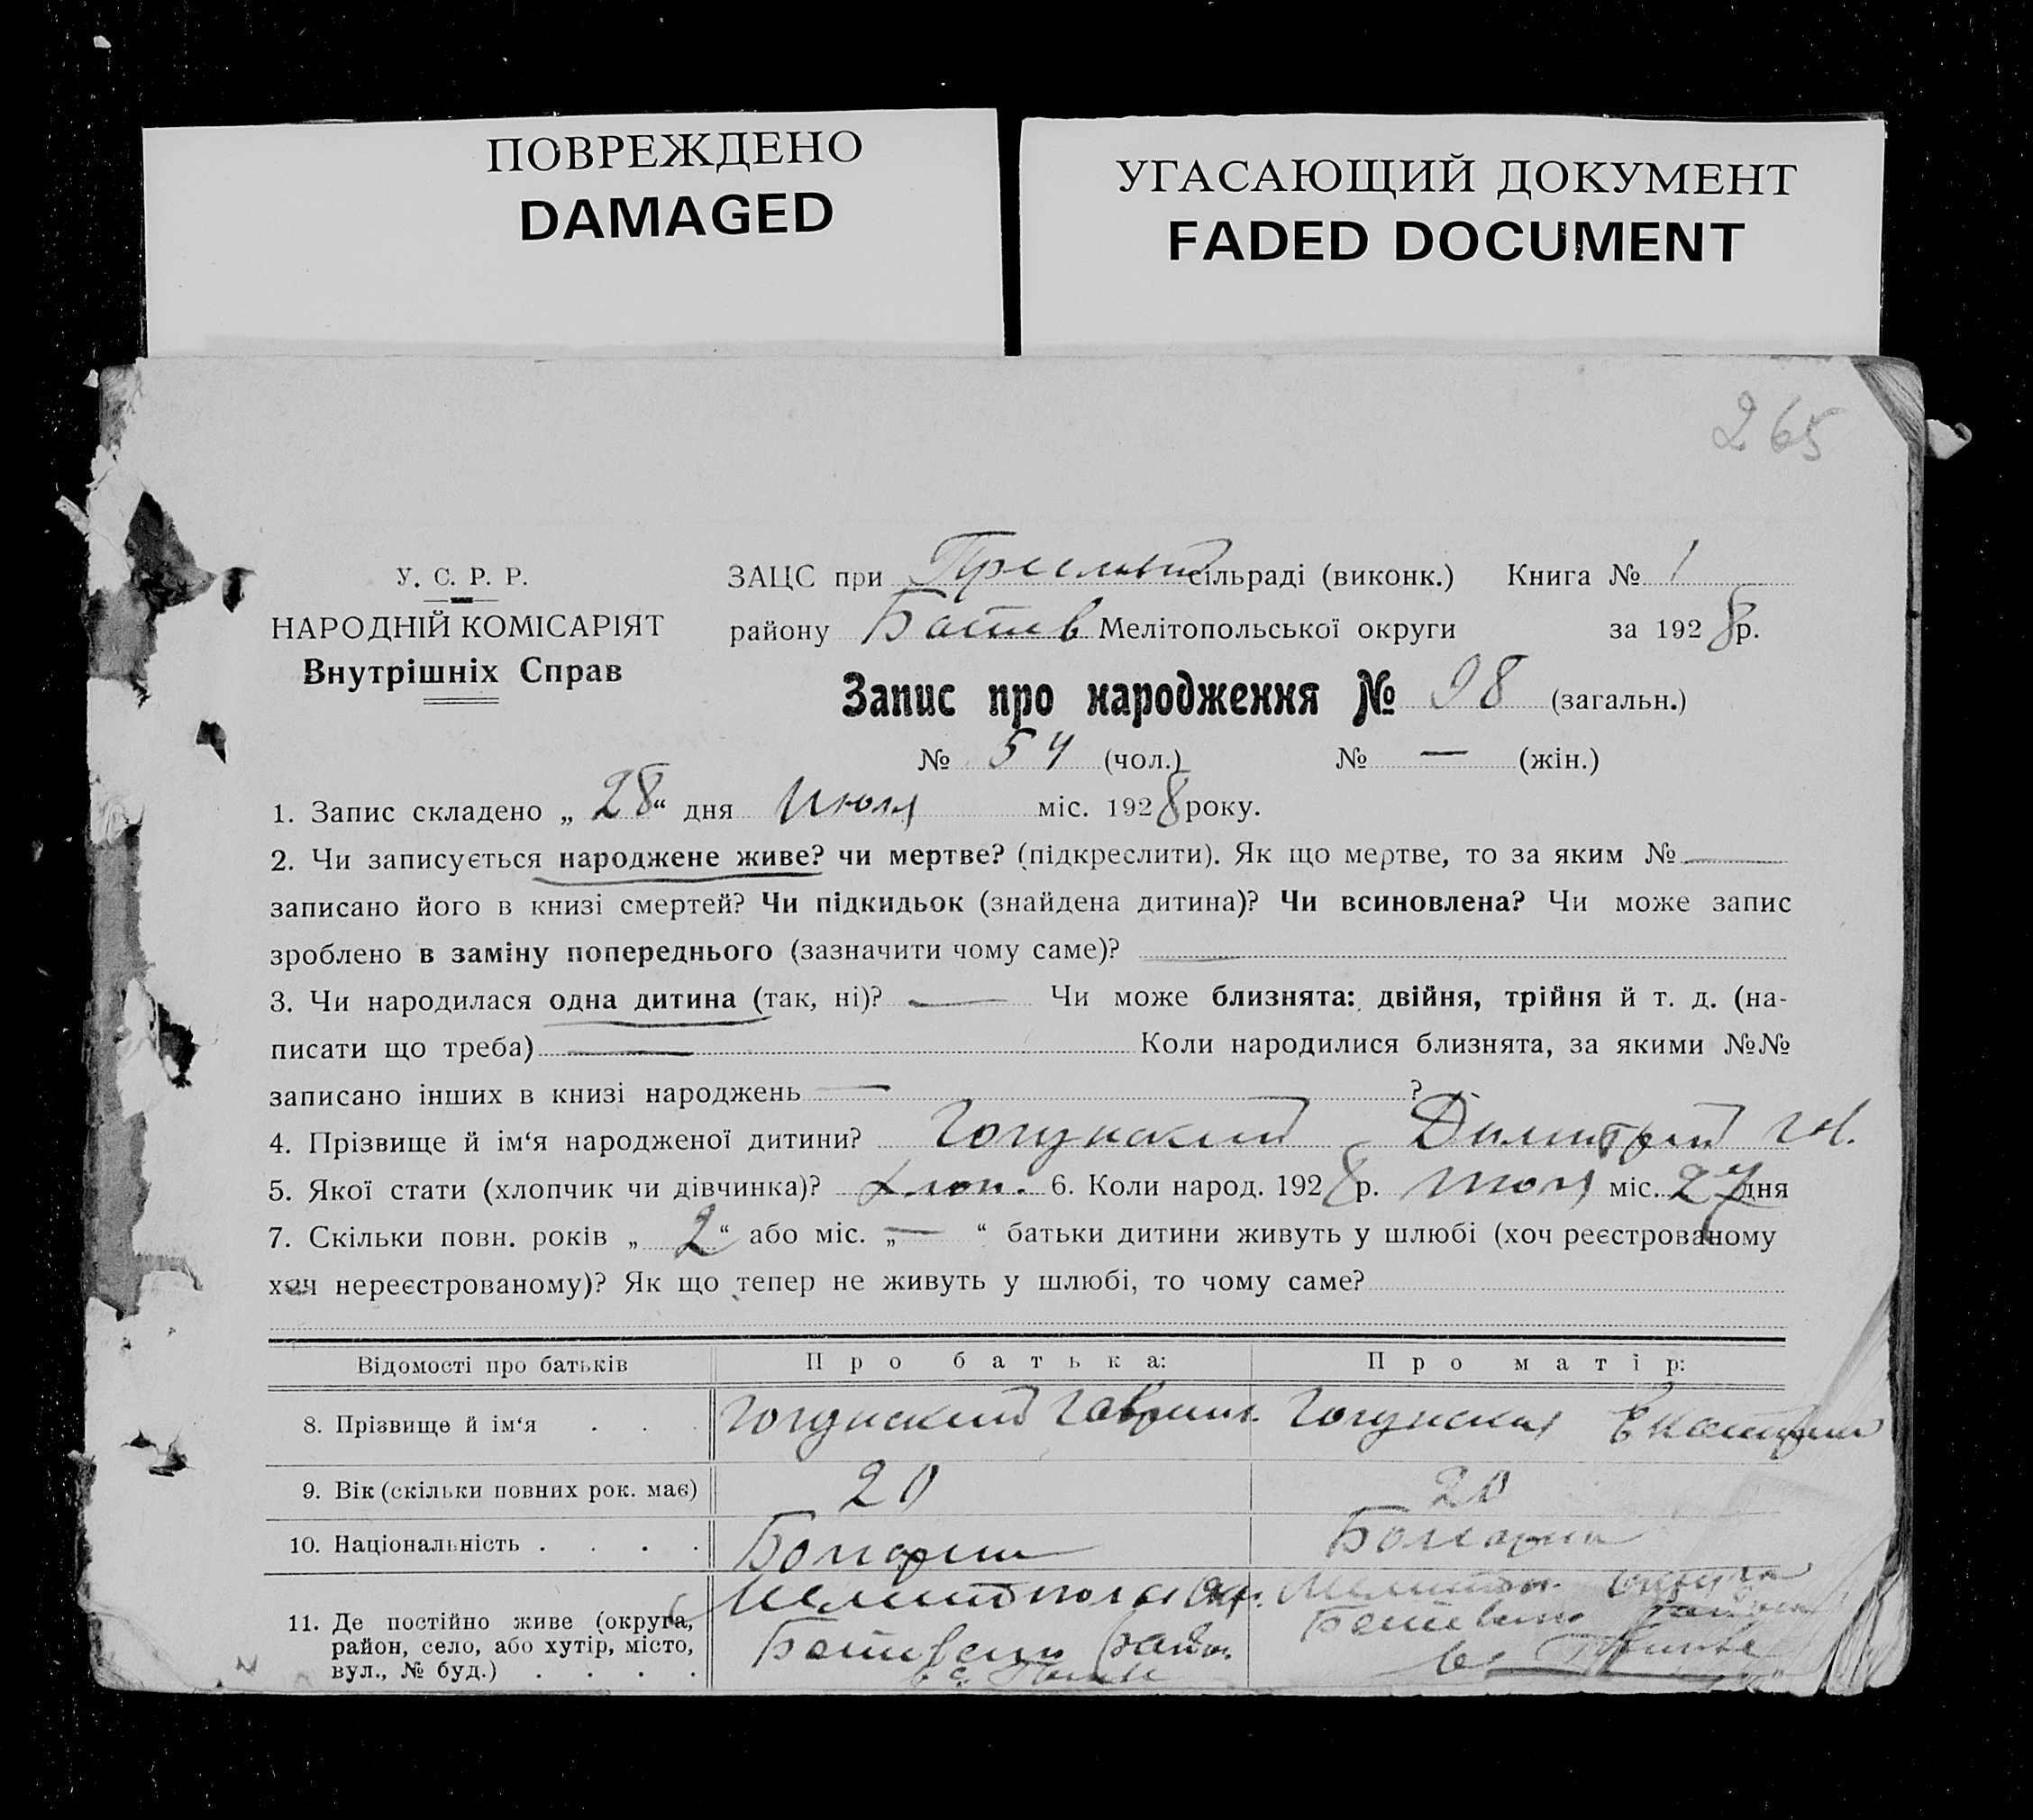 ПОВРЕЖДЕНО
DAMAGED
УГАСАЮЩИЙ ДОКУМЕНТ
FADED DOCUMENT
265
У. С. Р. Р.
НАРОДНІЙ КОМІСАРІЯТ
Внутрішніх Справ
ЗАЦС при сільраді (виконк.) Книга № 1
району Ботиев Мелітопольської округи за 1928р.
Запис про народження № 98 (загальн.)
№ 54 (чол.) № — (жін.)
1. Запис складено „28“ дня Июля міс. 1928 року.
2. Чи записується народжене живе? чи мертве? (підкреслити). Як що мертве, то за яким № —
записано його в книзі смертей? Чи підкидьок (знайдена дитина)? Чи всиновлена? Чи може запис
зроблено в заміну попереднього (зазначити чому саме)? —
3. Чи народилася одна дитина (так, ні)? — Чи може близнята: двійня, трійня й т. д. (на-
писати що треба) — Коли народилися близнята, за якими №№
записано інших в книзі народжень — ?
4. Прізвище й ім‘я народженої дитини? Гогунский Димитрий
5. Якої стати (хлопчик чи дівчинка)? хлоп. 6. Коли народ. 1928р. Июля міс. 27 дня
7. Скільки повн. років „2“ або міс. „—“ батьки дитини живуть у шлюбі (хоч реєстрованому
хоч нереєстрованому)? Як що тепер не живуть у шлюбі, то чому саме?
Відомості про батьків Про батька: Про матір:
8. Прізвище й ім‘я . . . Гогунский Гаврил. Гогунская Екатерина
9. Вік (скільки повних рок. має) 20 20
10. Національність . . . . Болгарин Болгарка
11. Де постійно живе (округа, Мелитопол Окр. Мелитоп. округа
район, село, або хутір, місто, Ботиевск район
вул., № буд.) . . . .